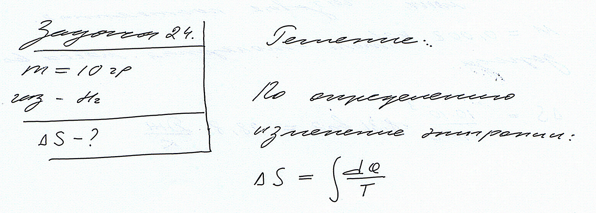 Задача 24.
m = 10 гр
газ - H₂
ΔS - ?
Решение:
По определению
изменение энтропии:
ΔS = ∫ dQ/T